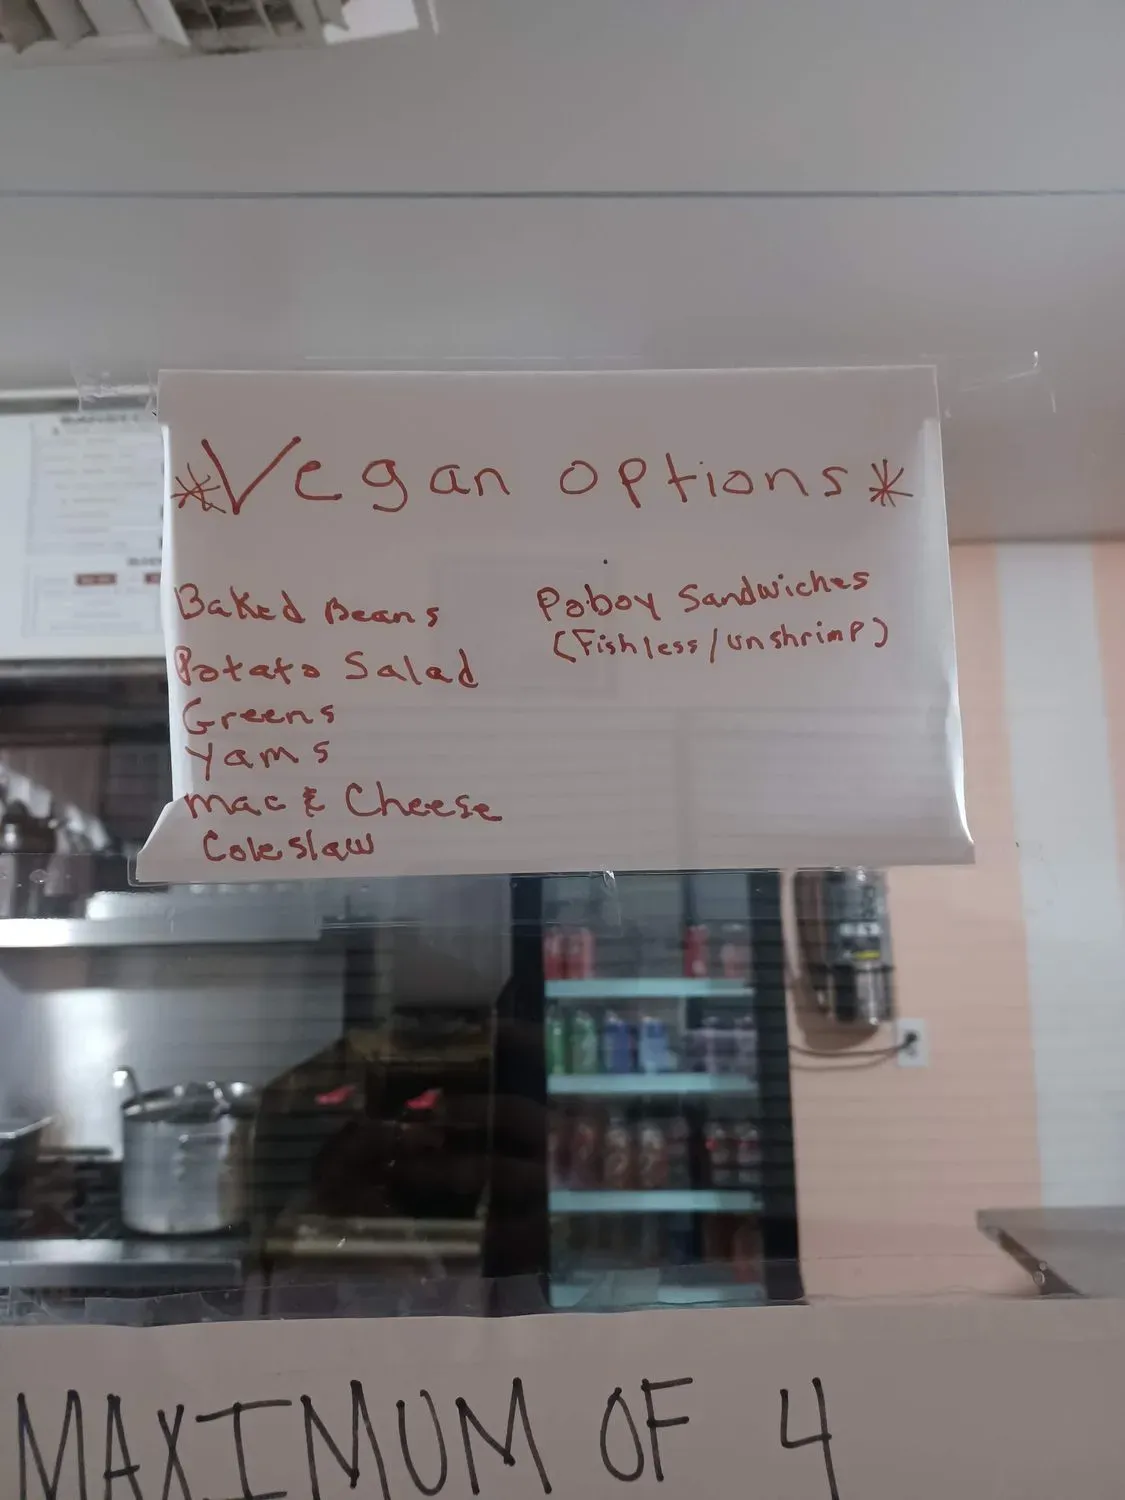 *Vegan options*
Baked Beans
Potato Salad
Greens
Yams
Mac & Cheese
Coleslaw
Po.boy Sandwiches
(Fishless/unshrimp)
MAXIMUM OF 4